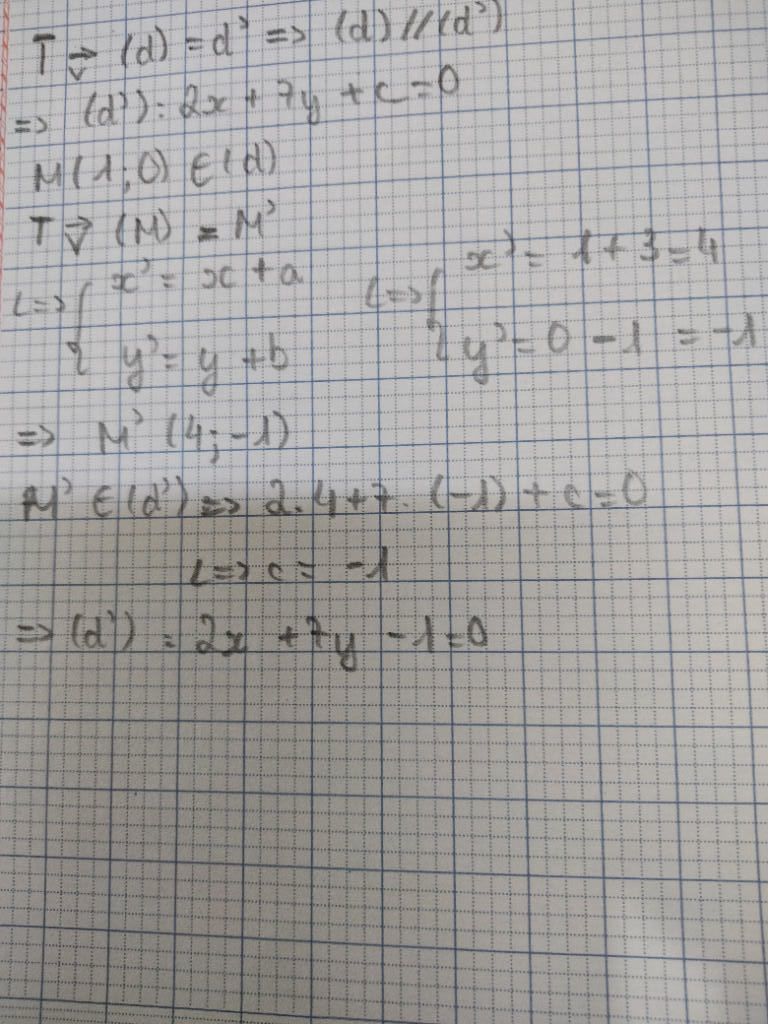 T v⃗ (d) = d' => (d) // (d')
=> (d') : 2x + 7y + c = 0
M(1;0) ∈ (d)
T v⃗ (M) = M'
<=> { x' = x + a <=> { x' = 1 + 3 = 4
y' = y + b y' = 0 - 1 = -1
=> M' (4; -1)
M' ∈ (d') => 2.4+7.(-1) + c = 0
<=> c = -1
=> (d') : 2x + 7y - 1 = 0